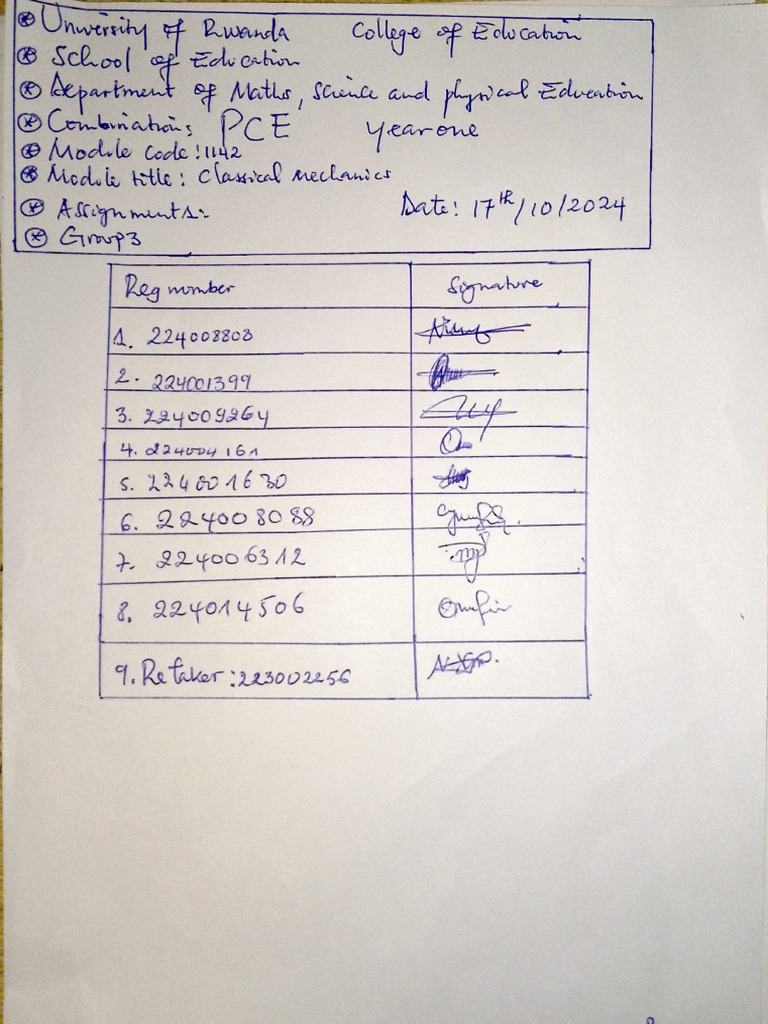 University of Rwanda College of Education
School of Education
Department of Maths, Science and physical Education
Combination: PCE Year one
Module Code: 1142
Module title: Classical Mechanics
Assignment 1:- Date: 17th/10/2024
Group 3
Reg number Signature
1. 224008803
2. 224001399
3. 224009264
4. 224004161
5. 224001630
6. 224008088
7. 224006312
8. 224014506
9. Retaker: 223002256